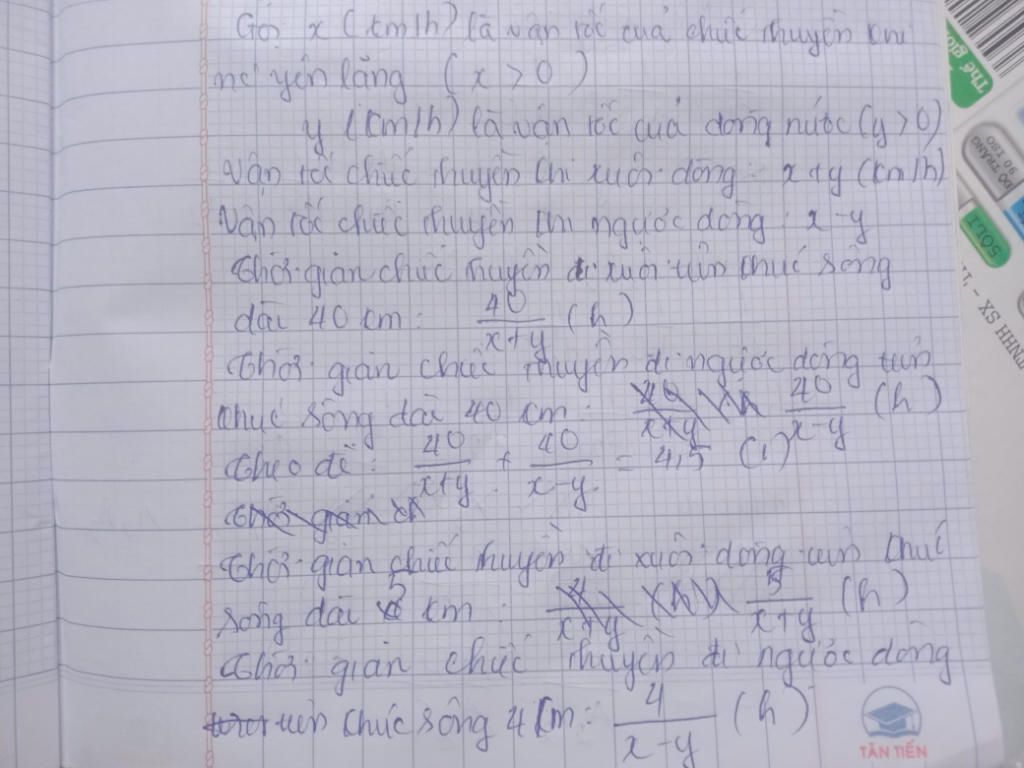 Gọi x (km/h) là vận tốc của chiếc thuyền khi
nc yên lặng (x > 0)
y (km/h) là vận tốc của dòng nước (y > 0)
Vận tốc chiếc thuyền khi xuôi dòng: x+y (km/h)
Vận tốc chiếc thuyền khi ngược dòng: x-y
Thời gian chiếc thuyền đi xuôi trên khúc sông
dài 40 km: 40/(x+y) (h)
Thời gian chiếc thuyền đi ngược dòng trên
khúc sông dài 40 km: 40/(x-y) (h)
Theo đề: 40/(x+y) + 40/(x-y) = 4,5 (1)
Thời gian
Thời gian chiếc thuyền đi xuôi dòng trên khúc
sông dài 5 km: 5/(x+y) (h)
Thời gian chiếc thuyền đi ngược dòng
trên khúc sông 4 km: 4/(x-y) (h)
TÂN TIẾN
Thế giớ
90 TRANG
ĐỘ TRẮNG
SOLI
TNHH SX -